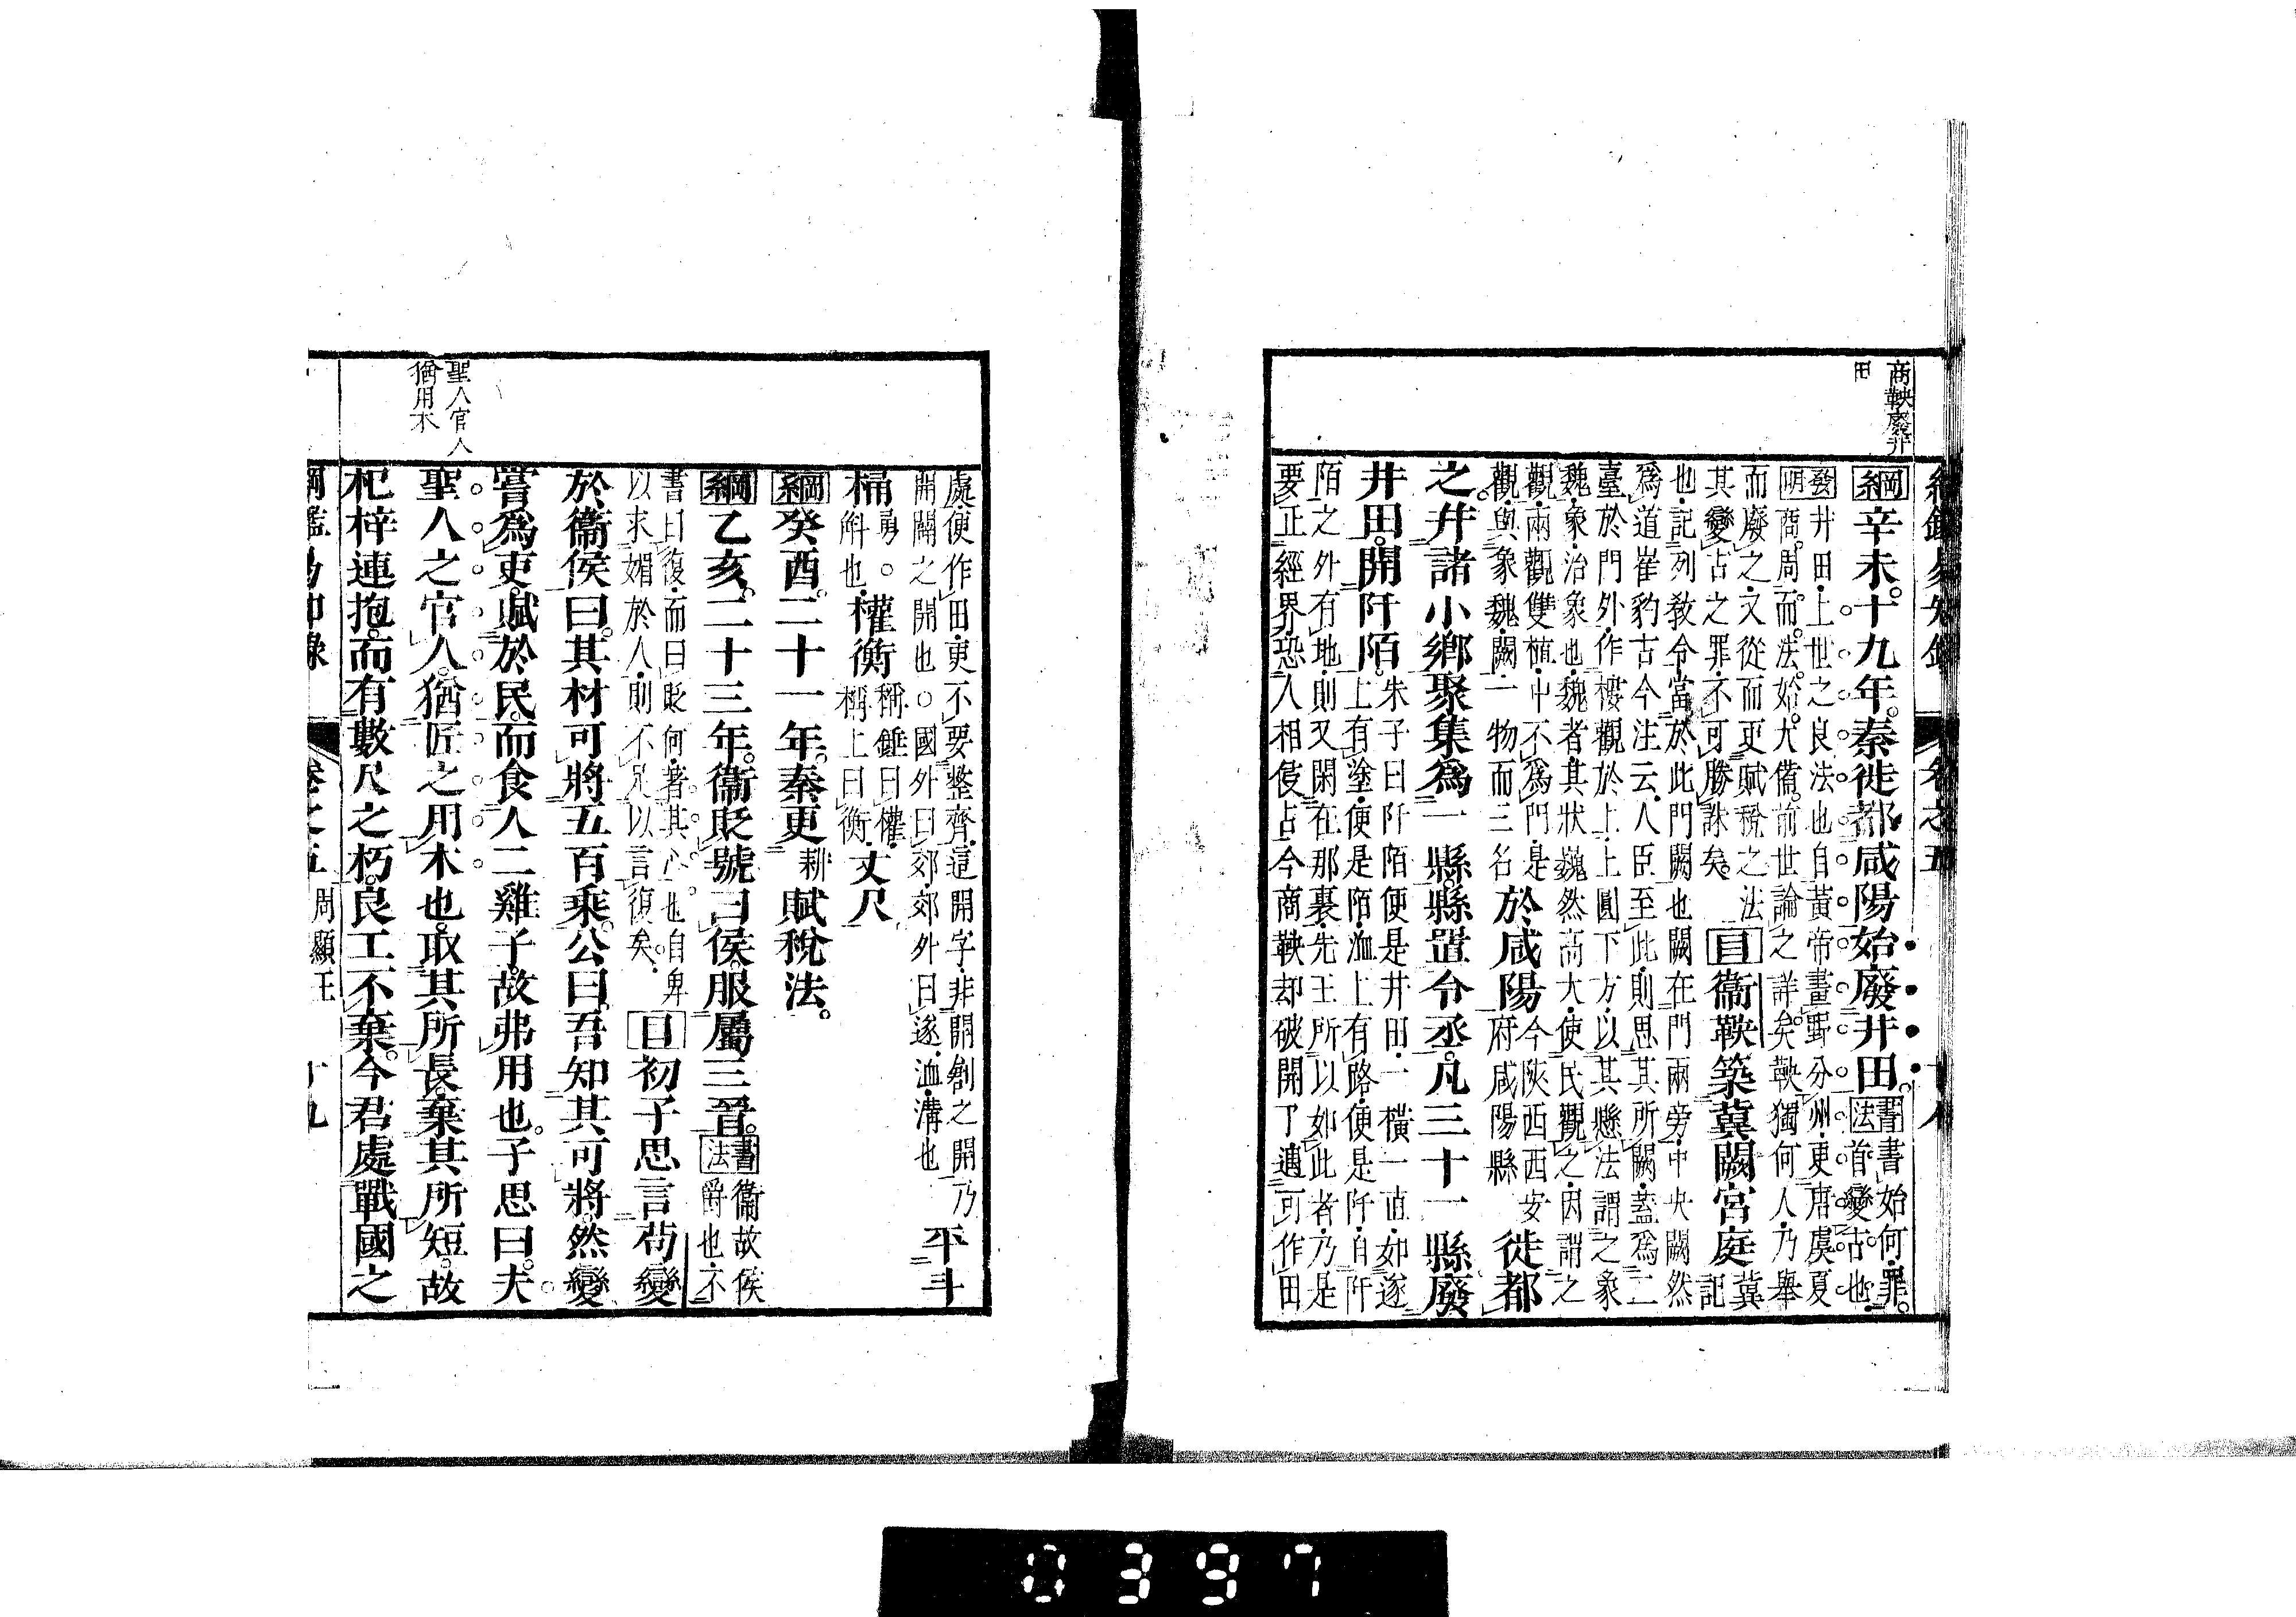 商鞅廢井
田
綱辛未。十九年。秦徙都咸陽。始廢井田。書法書始何。罪。首變古也。
發明井田。上世之良法也。自黃帝畫野分州。更唐虞夏
商。周。而。法。始。大備。前世論之詳矣。鞅獨何人。乃舉
而廢之。又從而更賦稅之法
其變占之罪。不可勝誅矣。目衞鞅築冀闕宮庭冀記
也。記列敎令。當於此門闕也。闕在門兩旁。中央闕然
爲道。崔豹古今注云。人臣至此。則思其所闕。蓋爲二
臺於門外。作樓觀於上。上圓下方。以其懸法謂之象
魏。象。治象也。魏者。其狀巍然高大。使民觀之。因謂之
觀。兩觀雙植。中不爲門。是
觀。與象魏。闕。一物而三名於咸陽今陝西西安
府咸陽縣徙都
之。幷諸小鄉聚集爲一縣。縣置令丞。凡三十一縣廢
井田。開阡陌。朱子曰。阡陌便是井田。一橫一直。如遂
上有塗。便是陌。洫上有路。便是阡。自阡
陌之外有地。則又閑在那裏。先王所以如此者。乃是
要正經界。恐人相侵占。今商鞅却破開了。遇可作田
綱鑑易知錄 卷之五 十八
處。便作田。更不要整齊。這開字。非開創之開。乃
開闢之開也。○國外曰郊。郊外曰遂。洫。溝也平斗
桶勇。○斛也。權衡稱錘曰權。稱上曰衡。丈尺
綱癸酉。二十一年。秦更耕賦稅法。
綱乙亥。二十三年。衞貶號曰侯。服屬三晉。書法衞故侯爵也。不
書曰復。而曰貶何。著其心也。自卑
以求媚於人。則不足以言復矣。目初子思言苟變
於衞侯曰。其材可將五百乘。公曰。吾知其可將。然變
嘗爲吏。賦於民。而食人二雞子。故弗用也。子思曰。夫
聖人之官人。猶匠之用木也。取其所長。棄其所短。故
杞梓連抱。而有數尺之朽。良工不棄。今君處戰國之
聖人官人
猶用木
綱鑑易知錄 卷之五 周顯王 十九
0397